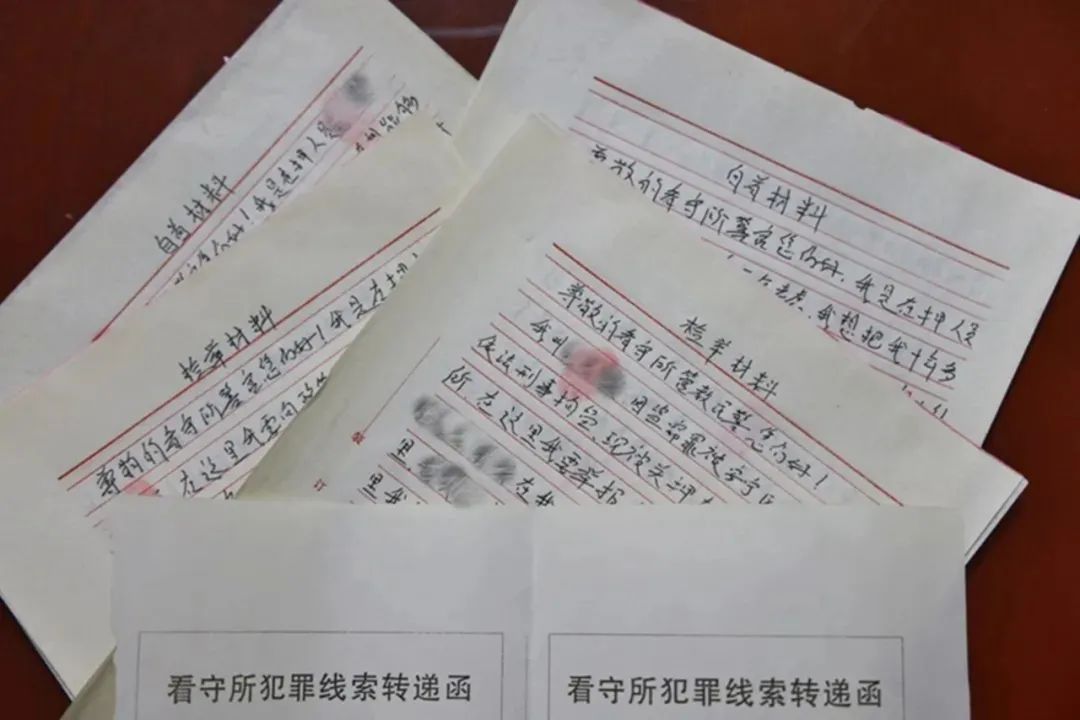 自首材料
您好！我是在押人员
自首材料
尊敬的看守所警官您们好，我是在押人员
我想把我十多
检举材料
尊敬的看守所警官您们好！我是在押
在这里我要向政
检举材料
尊敬的看守所管教民警您们好！
我叫 因盗窃罪被安宁区
依法刑事拘留、现被关押
所，在这里我要举报
在我
里我
看守所犯罪线索转递函
看守所犯罪线索转递函